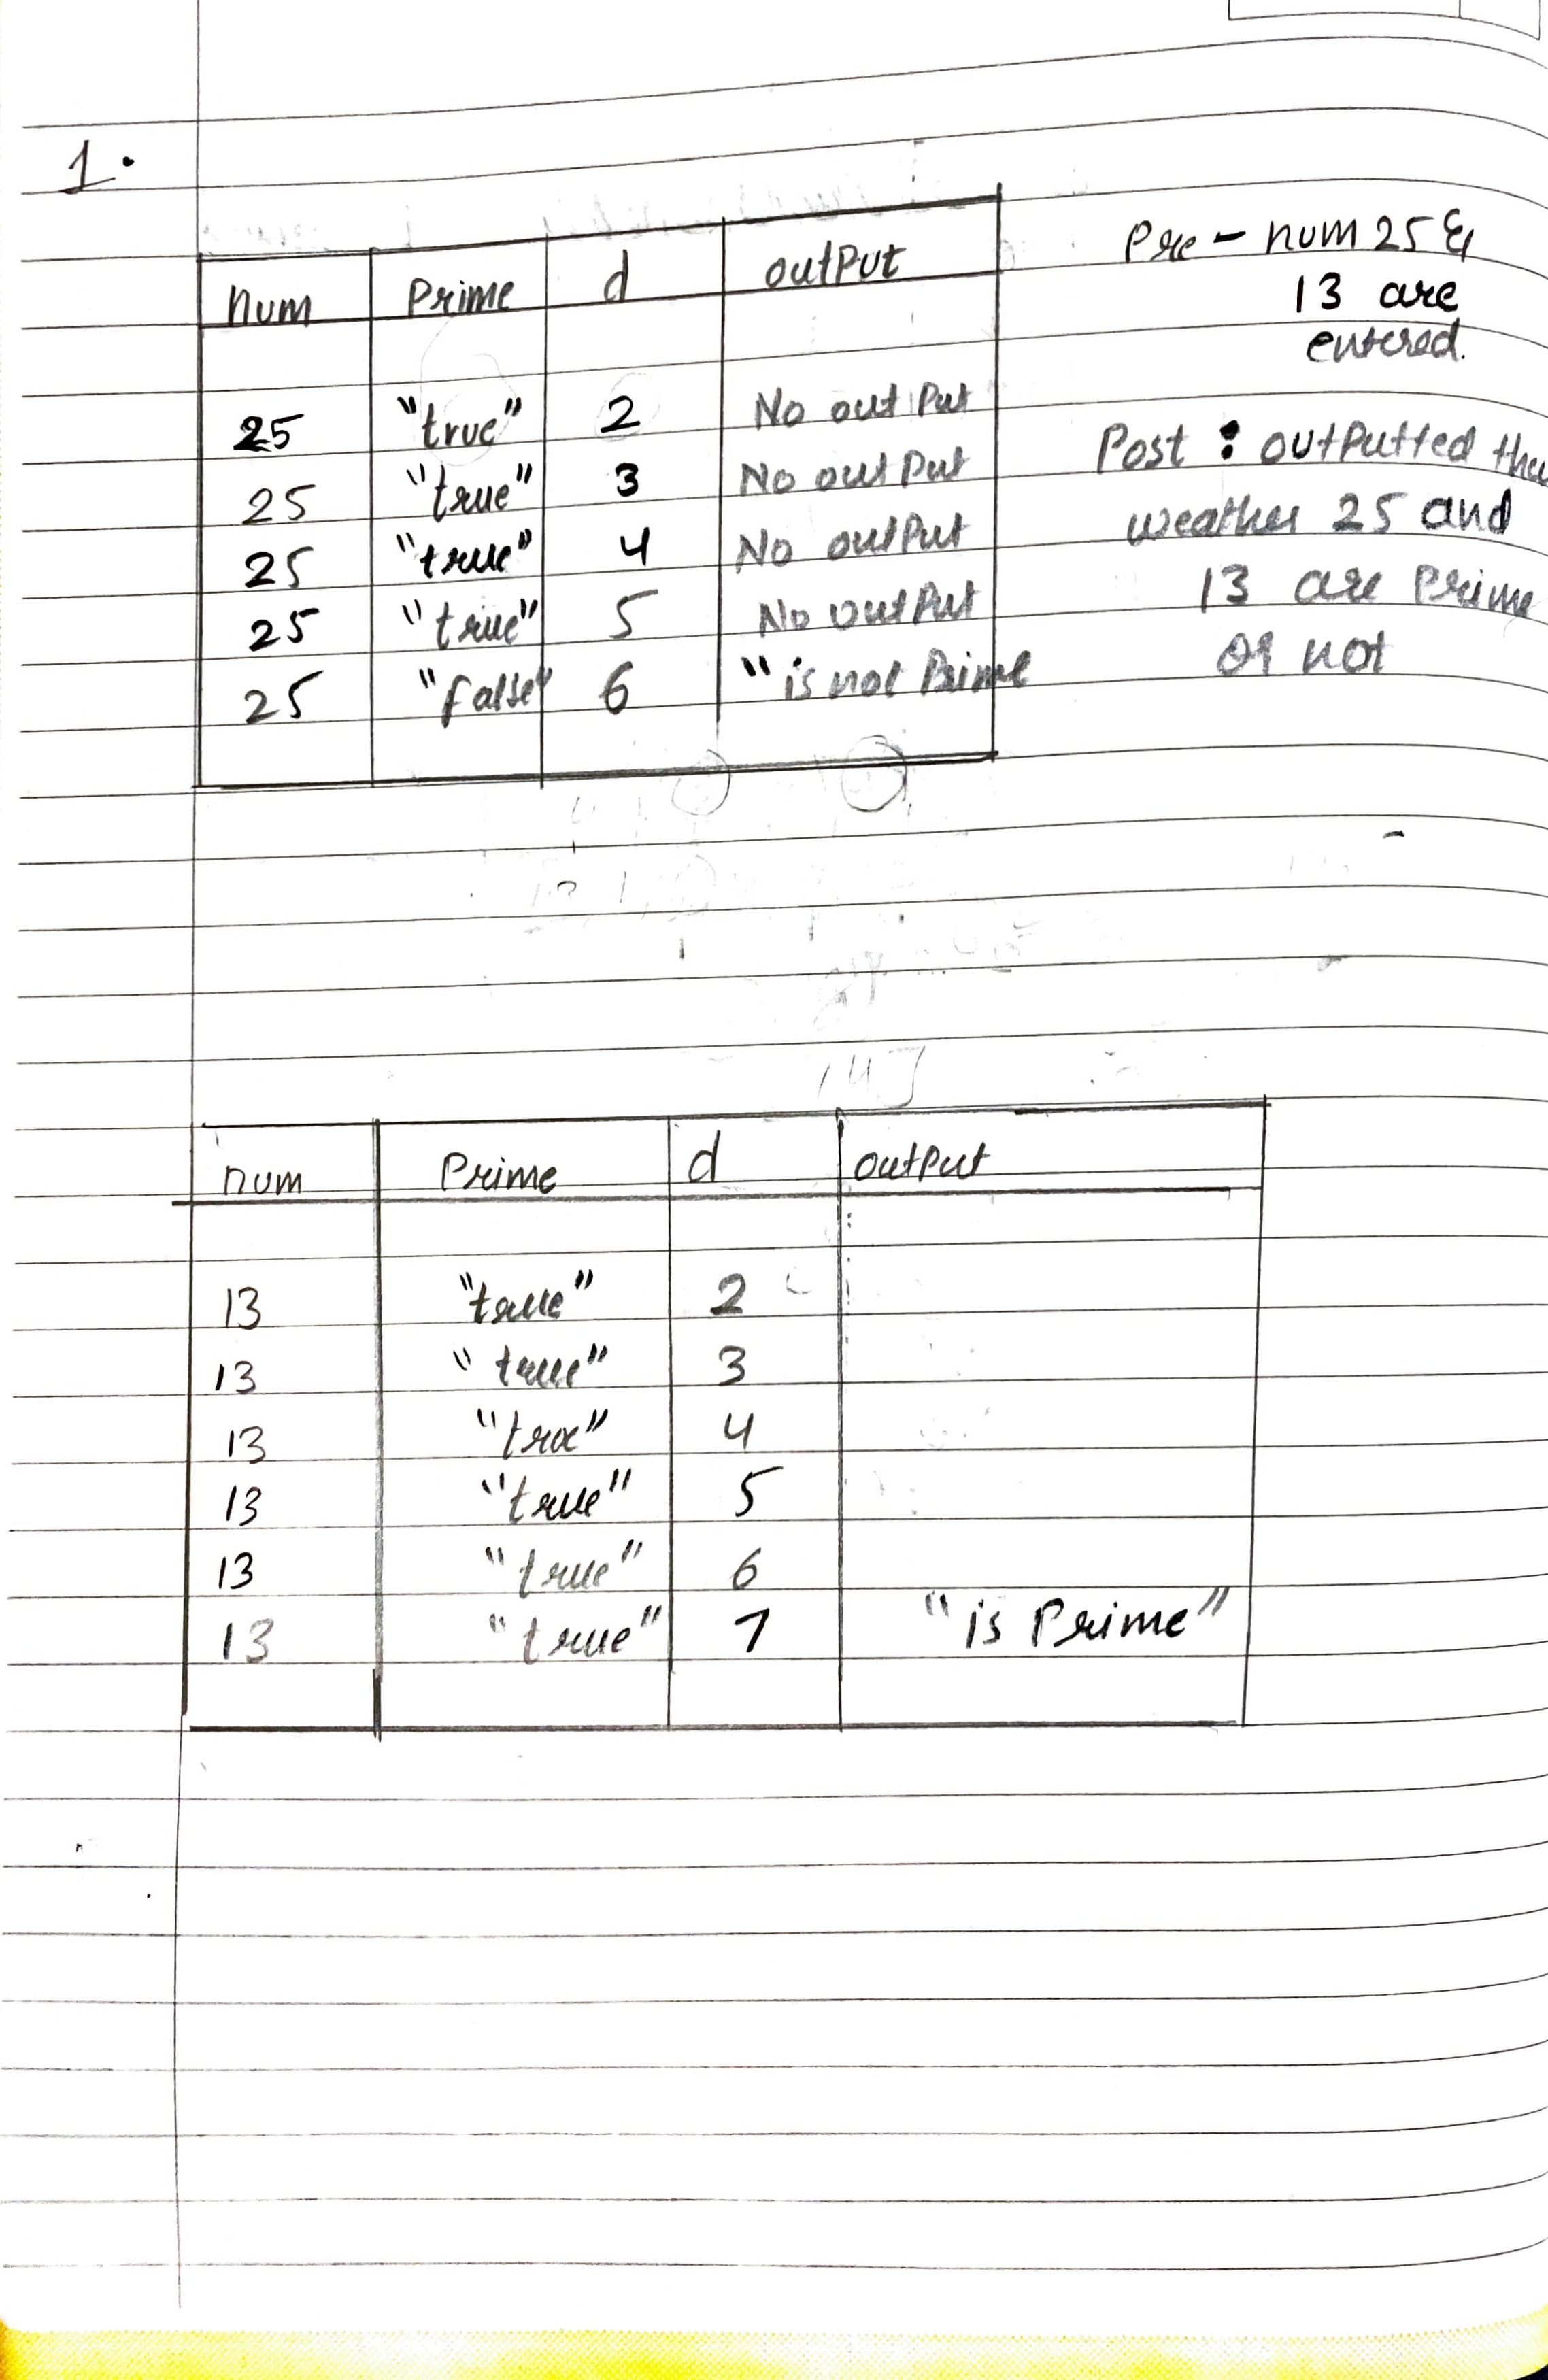 1.
num Prime d output
25 "true" 2 No output
25 "true" 3 No output
25 "true" 4 No output
25 "true" 5 No output
25 "false" 6 "is not Prime
Pre - num 25 &
13 are
entered.
Post : outputted the
weather 25 and
13 are Prime
or not
num Prime d output
13 "true" 2
13 "true" 3
13 "true" 4
13 "true" 5
13 "true" 6
13 "true" 7 "is Prime"